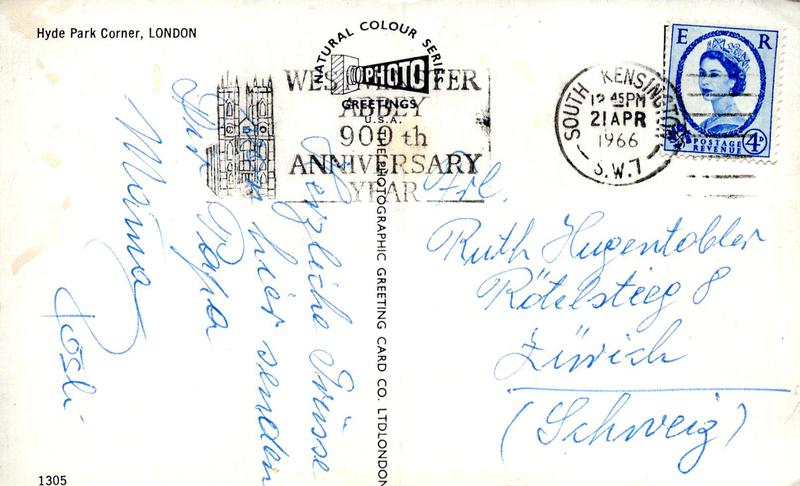 Hyde Park Corner, LONDON
NATURAL COLOUR SERIES
PHOTO
GREETINGS
U.S.A.
WESTMINSTER
ABBEY
900th
ANNIVERSARY
YEAR
SOUTH KENSINGTON
12 45PM
21 APR
1966
S.W.7
E R
POSTAGE
REVENUE
4D
THE PHOTOGRAPHIC GREETING CARD CO. LTD LONDON
Herzliche Grüsse
von hier senden
Dir Papa
Mama
Rösli
Frl.
Ruth Hugentobler
Rötelstieg 8
Zürich
(Schweiz)
1305